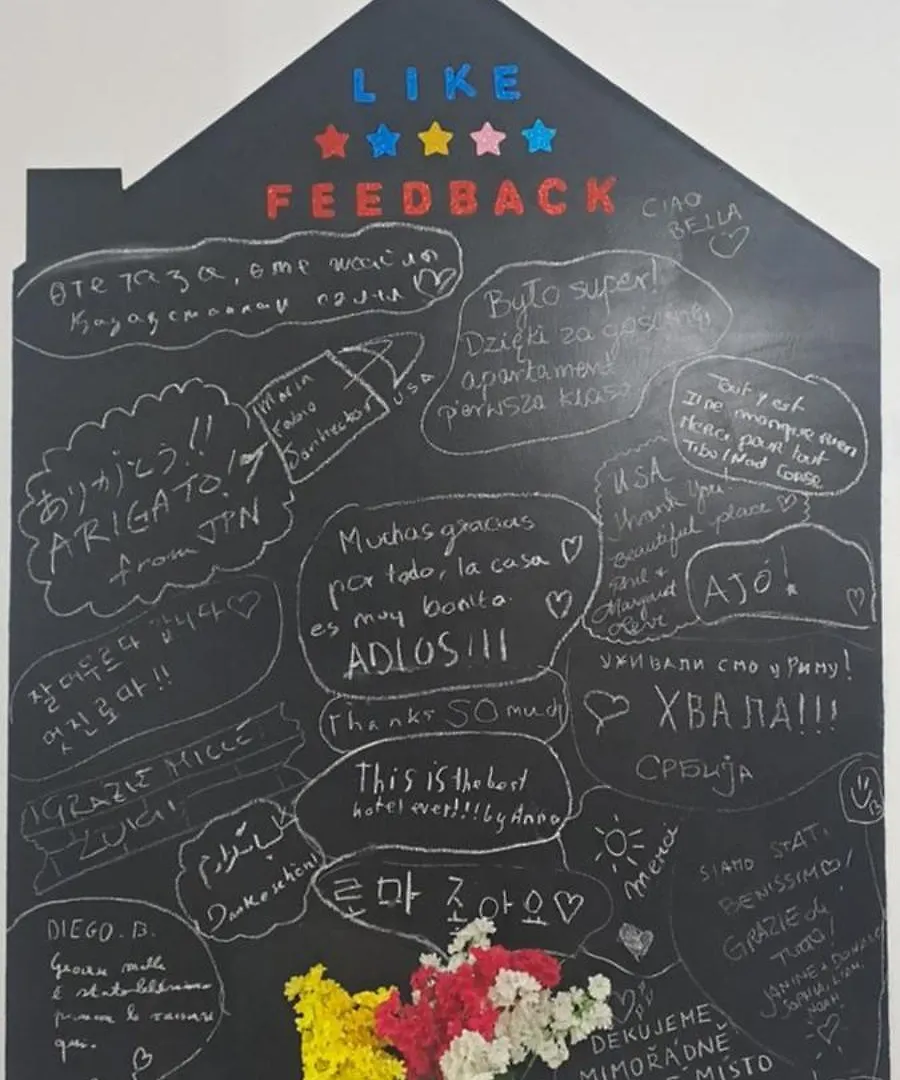 LIKE
FEEDBACK
CIAO
BELLA
өте таза, өте жайлы
Қазақстаннан
Było super!
Dzięki za gościnę,
apartament
pierwsza klasa
Maria
Fabio
USA
Tout y est
Il ne manque rien
Merci pour tout
ありがとう!!
ARIGATO!
from JPN
USA
Thank You!
Beautiful place
Muchas gracias
por todo, la casa
es muy bonita.
ADIOS!!!
AJÓ!
잘 머무르다 갑니다
멋진 로마!!
УЖИВАЛИ СМО У РИМУ!
ХВАЛА!!!
СРБИЈА
Thanks SO much
GRAZIE MILLE
This is the best
hotel ever!!! by Anna
Dankeschön!
로마 조아요
merci
SIAMO STATI
BENISSIMO!
GRAZIE di
TUTTO!
DIEGO. B.
Grazie mille
è stato bellissimo
qui.
DĚKUJEME
MIMOŘÁDNÉ
MÍSTO